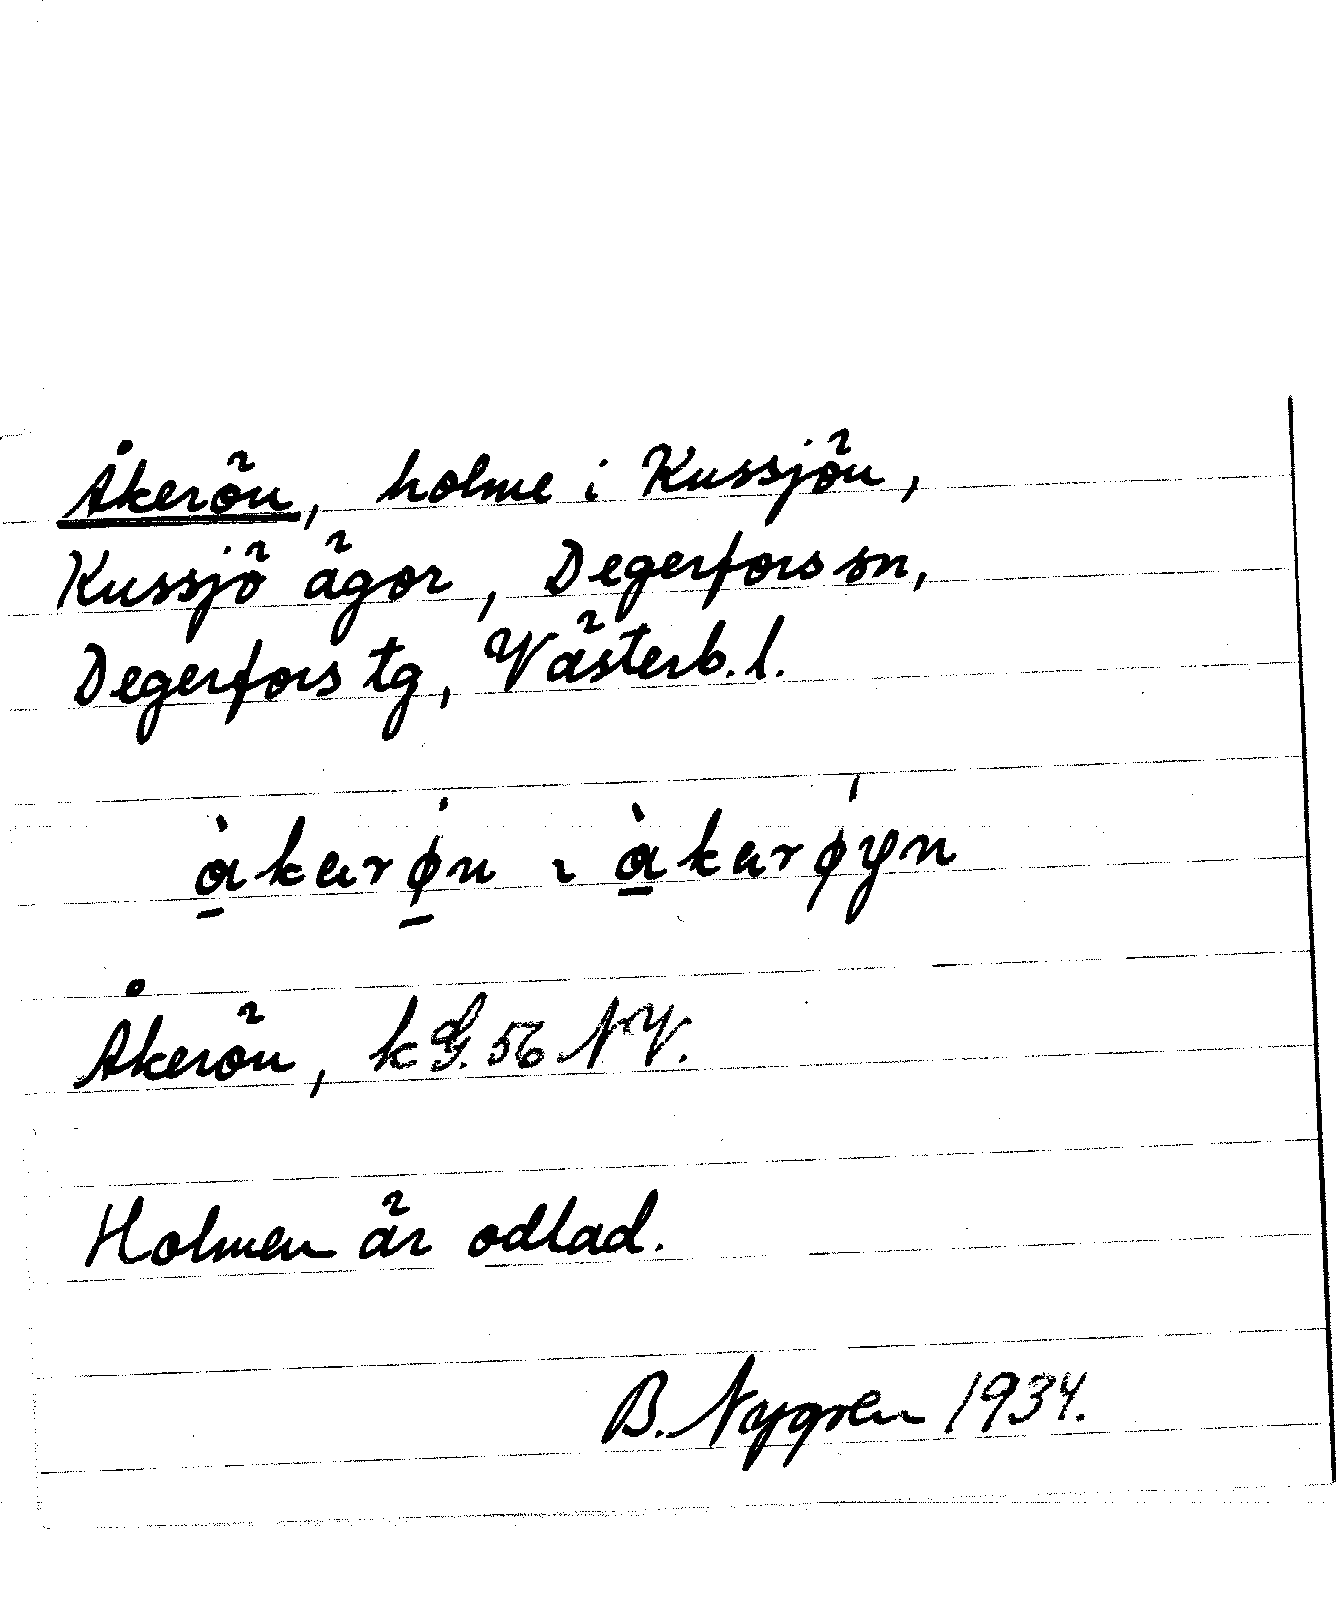 Åkerön, holme i Kussjön,
Kussjö ägor, Degerfors sn,
Degerfors tg, Västerb. l.
Åkerön, k G. 56 NV.
Holmen är odlad.
B. Nygren 1934.